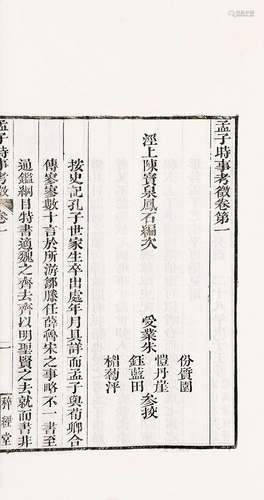 孟子時事考徵卷第一
涇上陳寶泉鳳石編次
受業朱
份質園
愷丹崖
鈺藍田
榗菊泙
參挍
按史記孔子世家生卒出處年月具詳而孟子與荀卿合
傳寥寥數十言於所游鄒滕任薛魯宋之事略不一書至
通鑑綱目特書適魏之齊去齊以明聖賢之去就而書非
孟子時事考徵
卷一
一
碎經堂